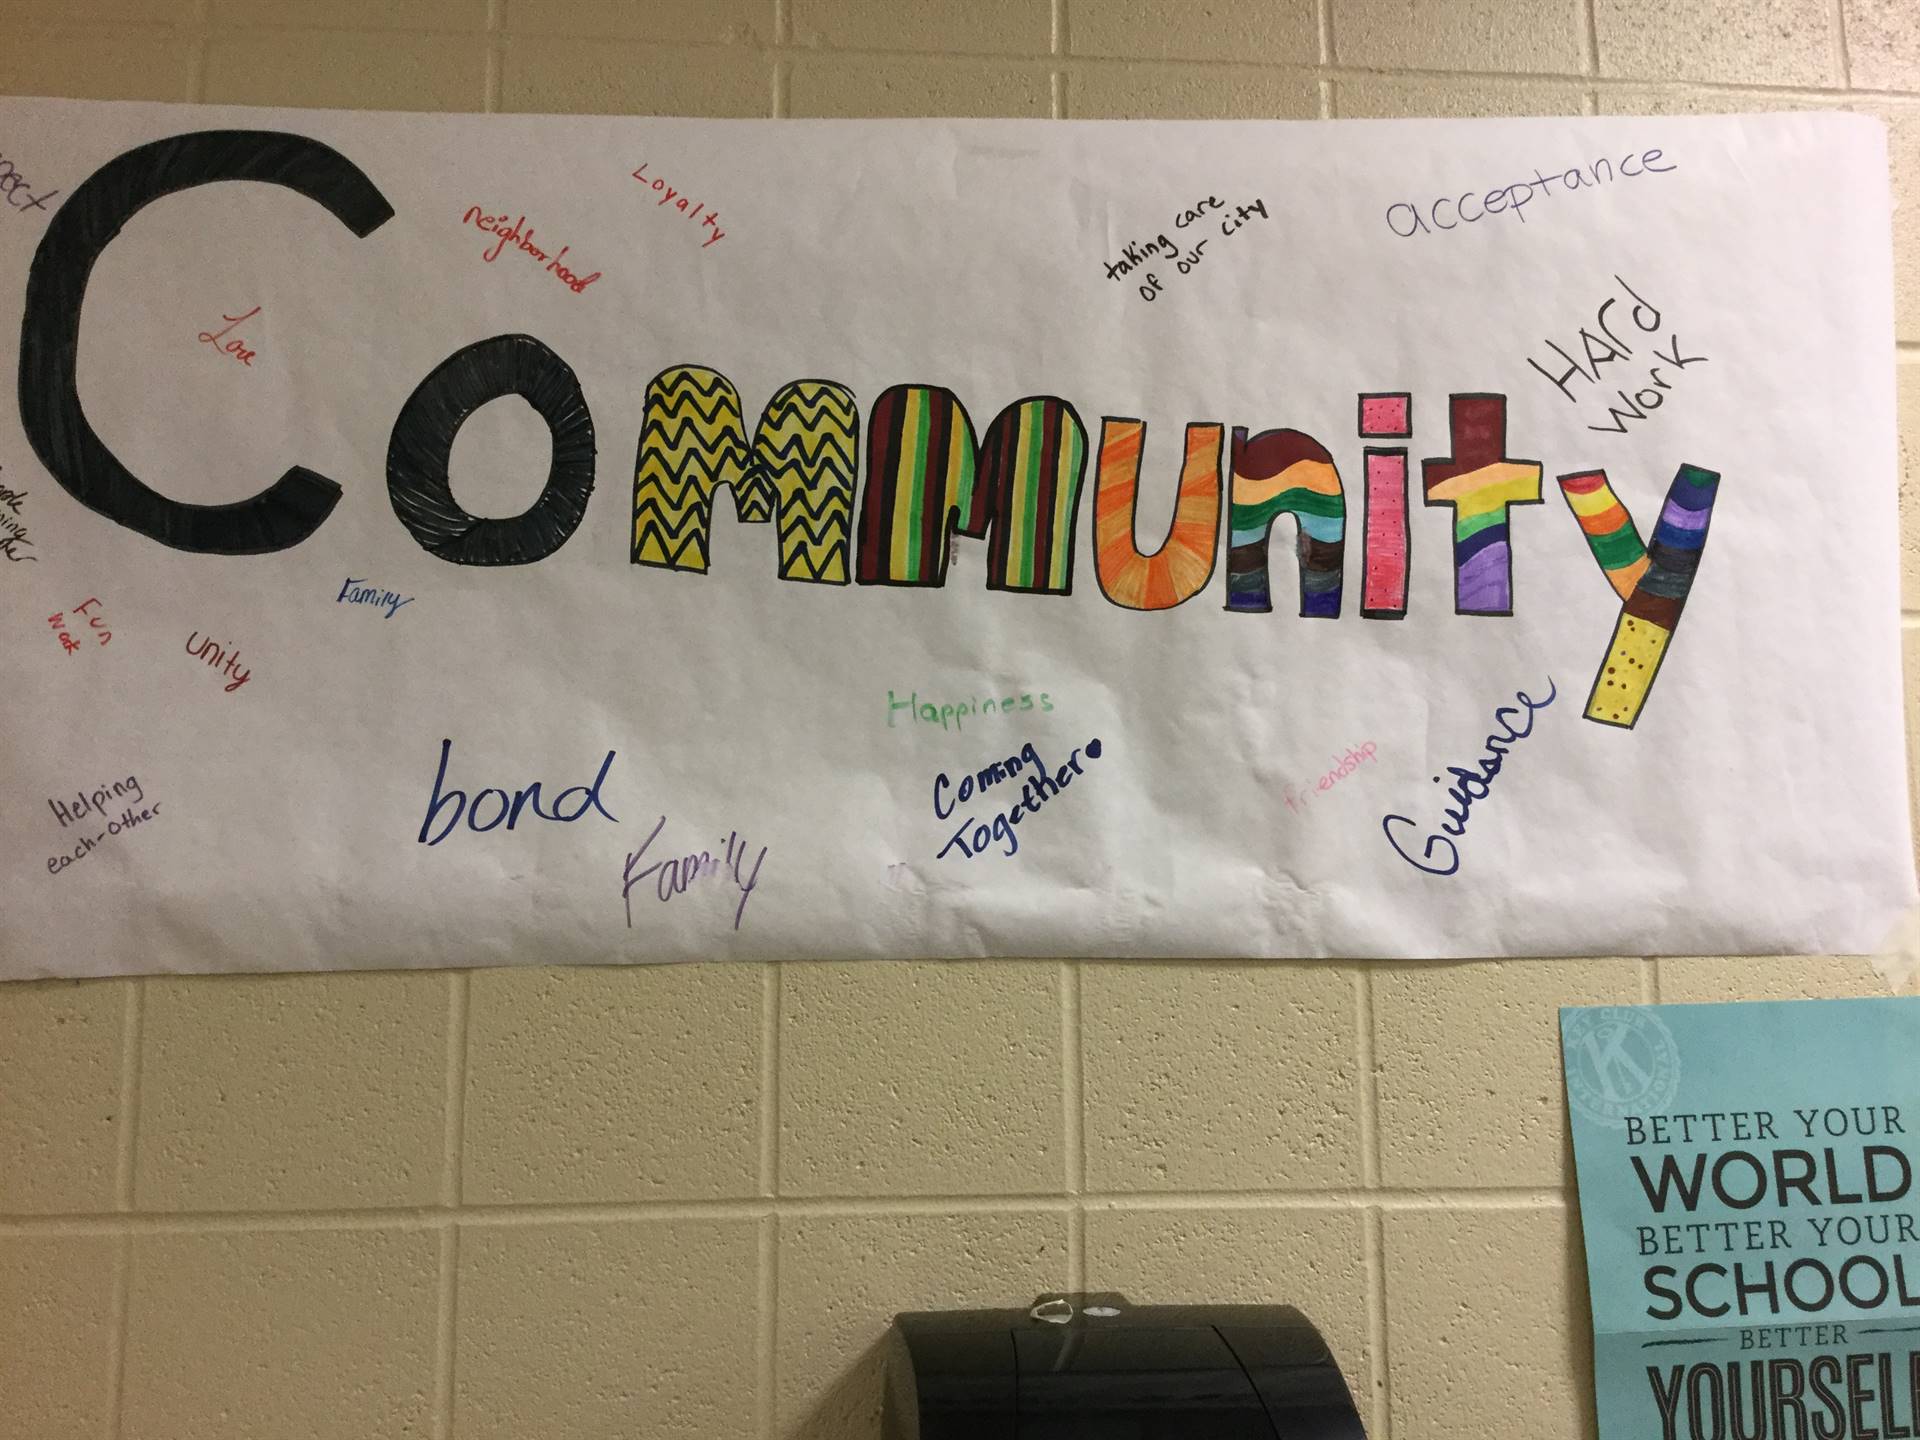 Community
Loyalty
neighborhood
Love
taking care
of our city
acceptance
HARd
Work
Family
Fun
unity
Happiness
bond
Family
Coming
Together
friendship
Guidance
Helping
each-other
BETTER YOUR
WORLD
BETTER YOUR
SCHOOL
BETTER
YOURSELF